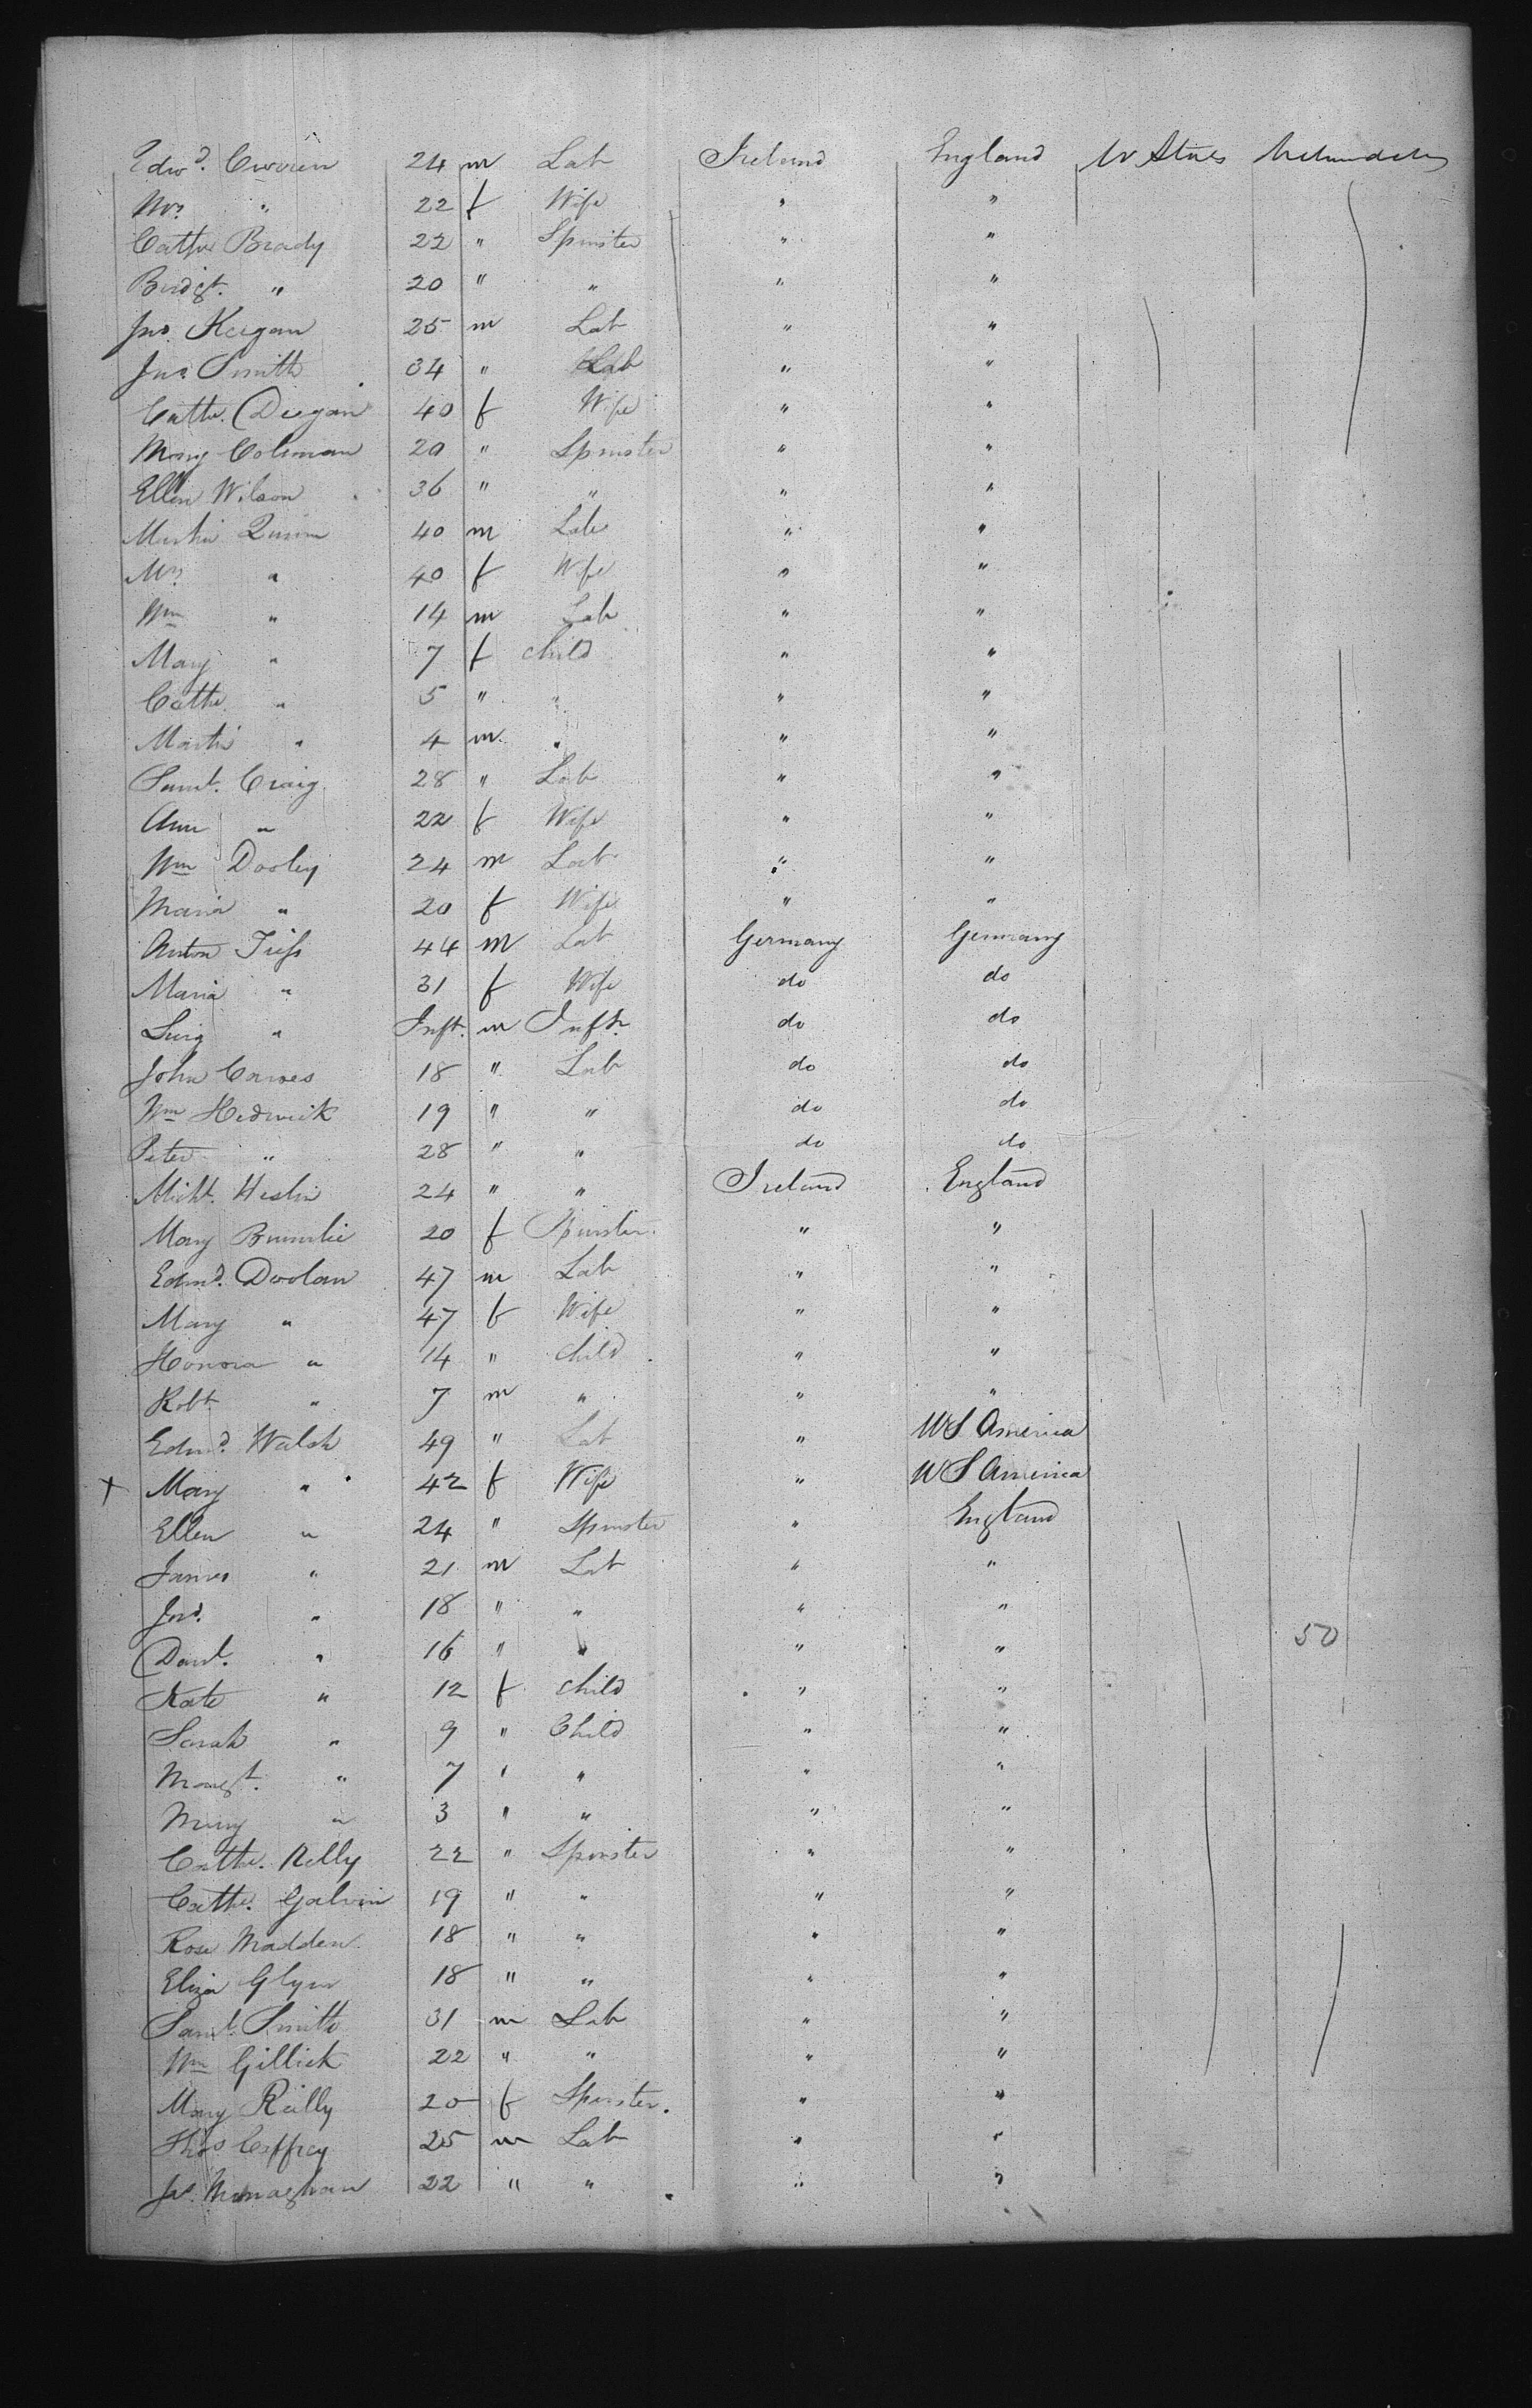 Edwd. 24 m Lab Ireland England U States
Mrs " 22 f Wife " "
Cathe Brady 22 " Spinster " "
Bridgt. " 20 " " " "
Jno. Keegan 25 m Lab " "
Jno. Smith 34 " Lab " "
Cathe. Deegan 40 f Wife " "
Mary Coleman 20 " Spinster " "
Ellen Wilson 36 " " " "
Martin Quinn 40 m Lab " "
Mrs " 40 f Wife " "
Wm " 14 m Lab " "
Mary " 7 f child " "
Cathe. " 5 " " " "
Martin " 4 m " " "
Saml. Craig 28 " Lab " "
Ann " 22 f Wife " "
Wm Dooley 24 m Lab " "
Maria " 20 f Wife " "
Anton 44 m Lab Germany Germany
Maria " 31 f Wife do do
" Inft. m Inft. do do
John 18 " Lab do do
Wm Hedwick 19 " " do do
Peter " 28 " " do do
Michl. Heslin 24 " " Ireland England
Mary 20 f Spinster. " "
Edmd. Doolan 47 m Lab " "
Mary " 47 f Wife " "
Honora " 14 " child " "
Robt. " 7 m " " "
Edmd. Walsh 49 " Lab " US America
x Mary " 42 f Wife " US America
Ellen " 24 " Spinster " England
James " 21 m Lab " "
Jno. " 18 " " " "
Danl. " 16 " " " " 50
Kate " 12 f child " "
Sarah " 9 " Child " "
Margt. " 7 " " " "
Mary " 3 " " " "
Cathe. Relly 22 " Spinster " "
Cathe. Galvin 19 " " " "
Rose Madden 18 " " " "
Eliza Glynn 18 " " " "
Saml. Smith 31 m Lab " "
Wm Gillick 22 " " " "
Mary Reilly 20 f Spinster. " "
Thos Caffrey 25 m Lab " "
Jas. Monaghan 22 " " " "